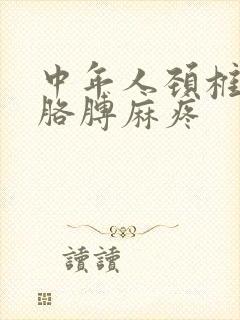 中年人颈椎
胳膊麻疼
讀讀